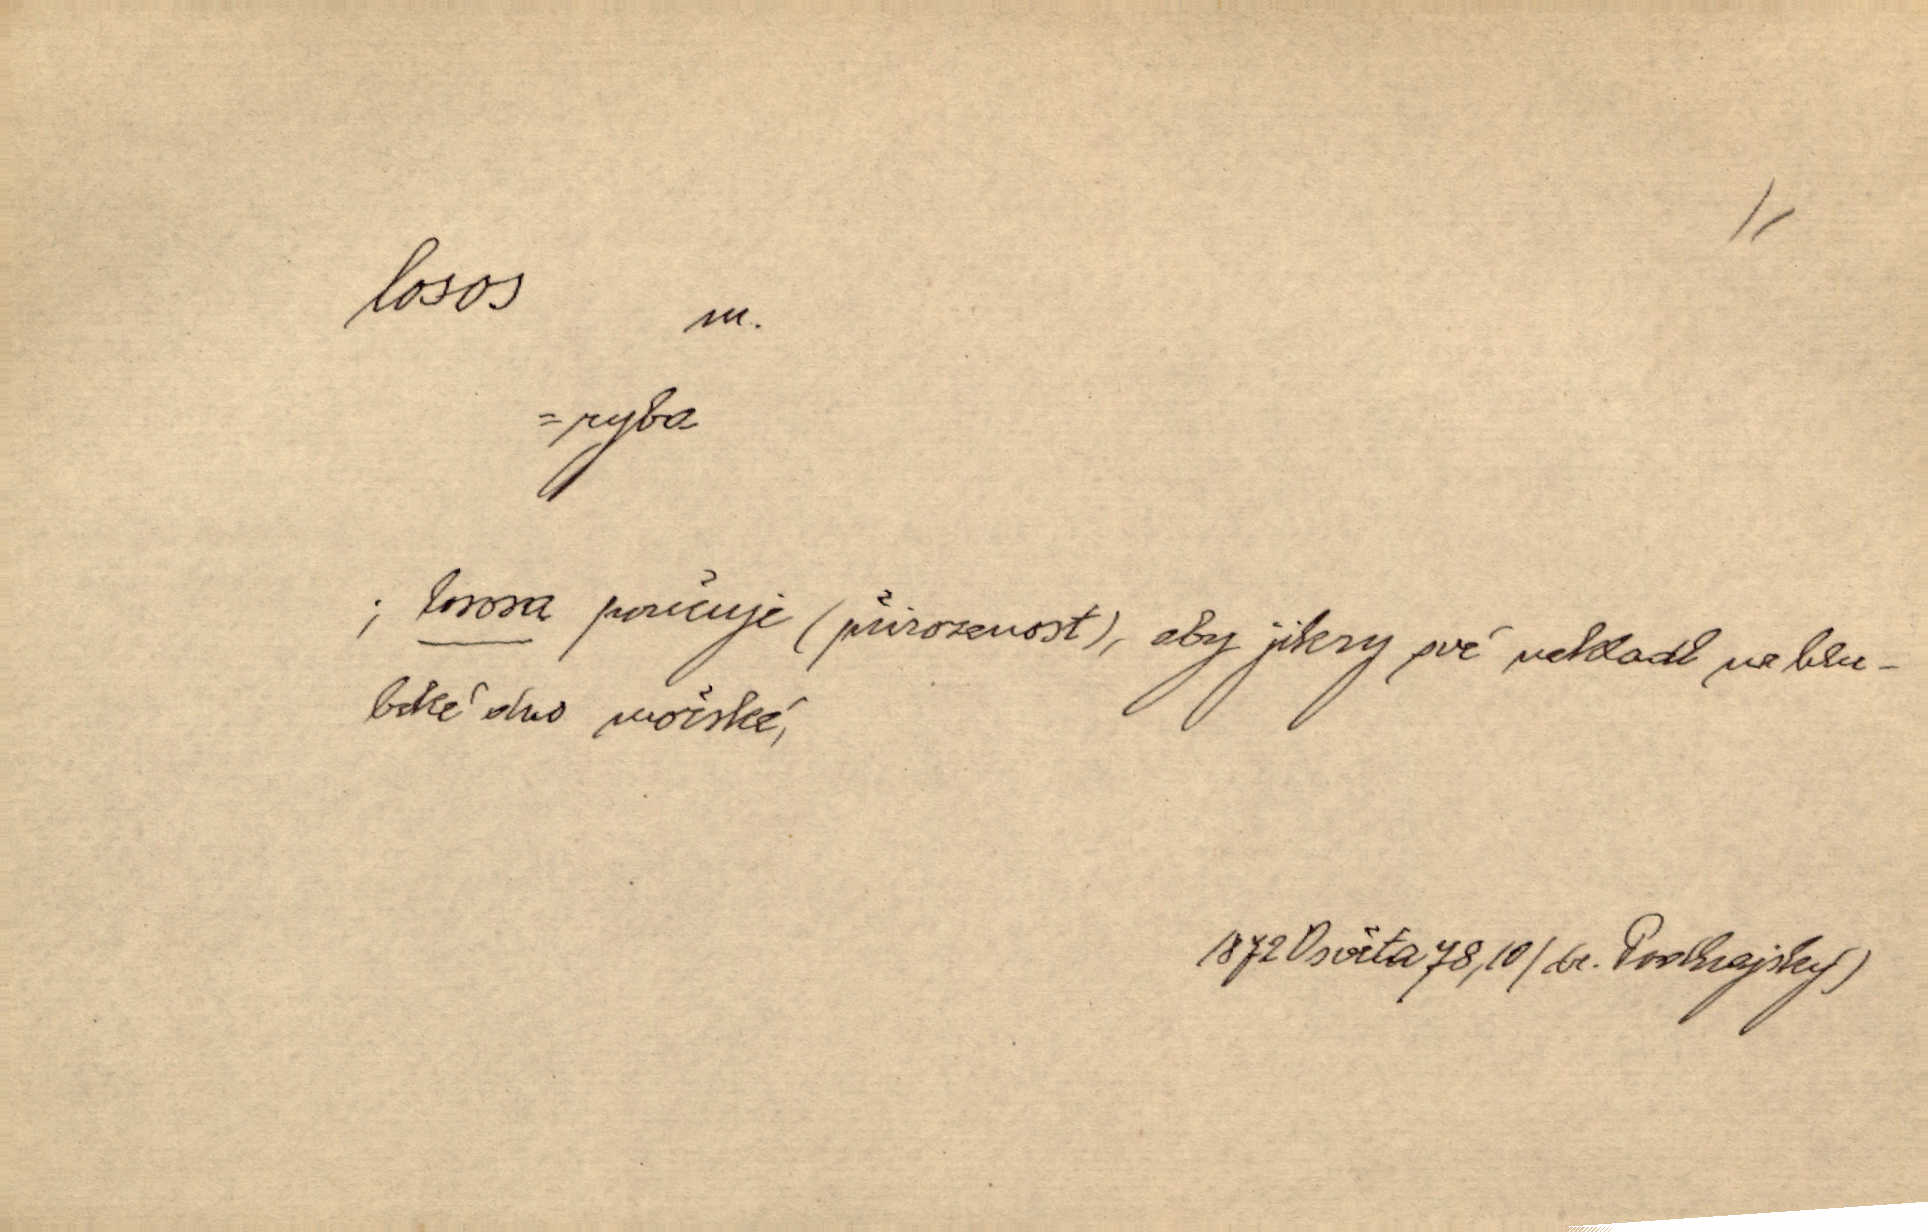 losos m.
= ryba
; lososa poučuje (přirozenost), aby jikry své nekladl na hlu-
boké dno mořské,
1872 Osvěta 78, 10 (dr. Podhajský)